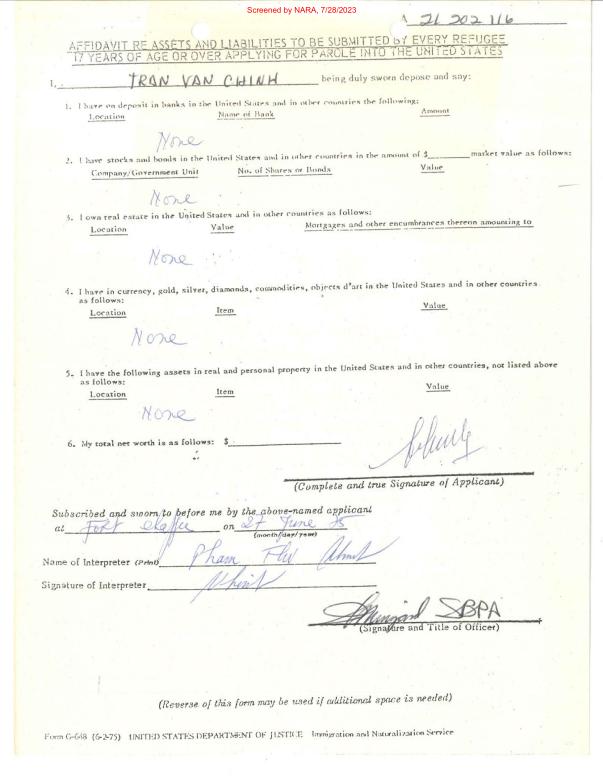 Screened by NARA, 7/28/2023
A 21 202 116
AFFIDAVIT RE ASSETS AND LIABILITIES TO BE SUBMITTED BY EVERY REFUGEE
17 YEARS OF AGE OR OVER APPLYING FOR PAROLE INTO THE UNITED STATES
I, TRAN VAN CHINH being duly sworn depose and say:
1. I have on deposit in banks in the United States and in other countries the following:
Location Name of Bank Amount
None
2. I have stocks and bonds in the United States and in other countries in the amount of $ market value as follows:
Company/Government Unit No. of Shares or Bonds Value
None
3. I own real estate in the United States and in other countries as follows:
Location Value Mortgages and other encumbrances thereon amounting to
None
4. I have in currency, gold, silver, diamonds, commodities, objects d'art in the United States and in other countries
as follows:
Location Item Value
None
5. I have the following assets in real and personal property in the United States and in other countries, not listed above
as follows:
Location Item Value
None
6. My total net worth is as follows: $
(Complete and true Signature of Applicant)
Subscribed and sworn to before me by the above-named applicant
at Fort on 27 June 75
(month/day/year)
Name of Interpreter (Print) Pham
Signature of Interpreter
SBPA
(Signature and Title of Officer)
(Reverse of this form may be used if additional space is needed)
Form G-648 (6-2-75) UNITED STATES DEPARTMENT OF JUSTICE Immigration and Naturalization Service